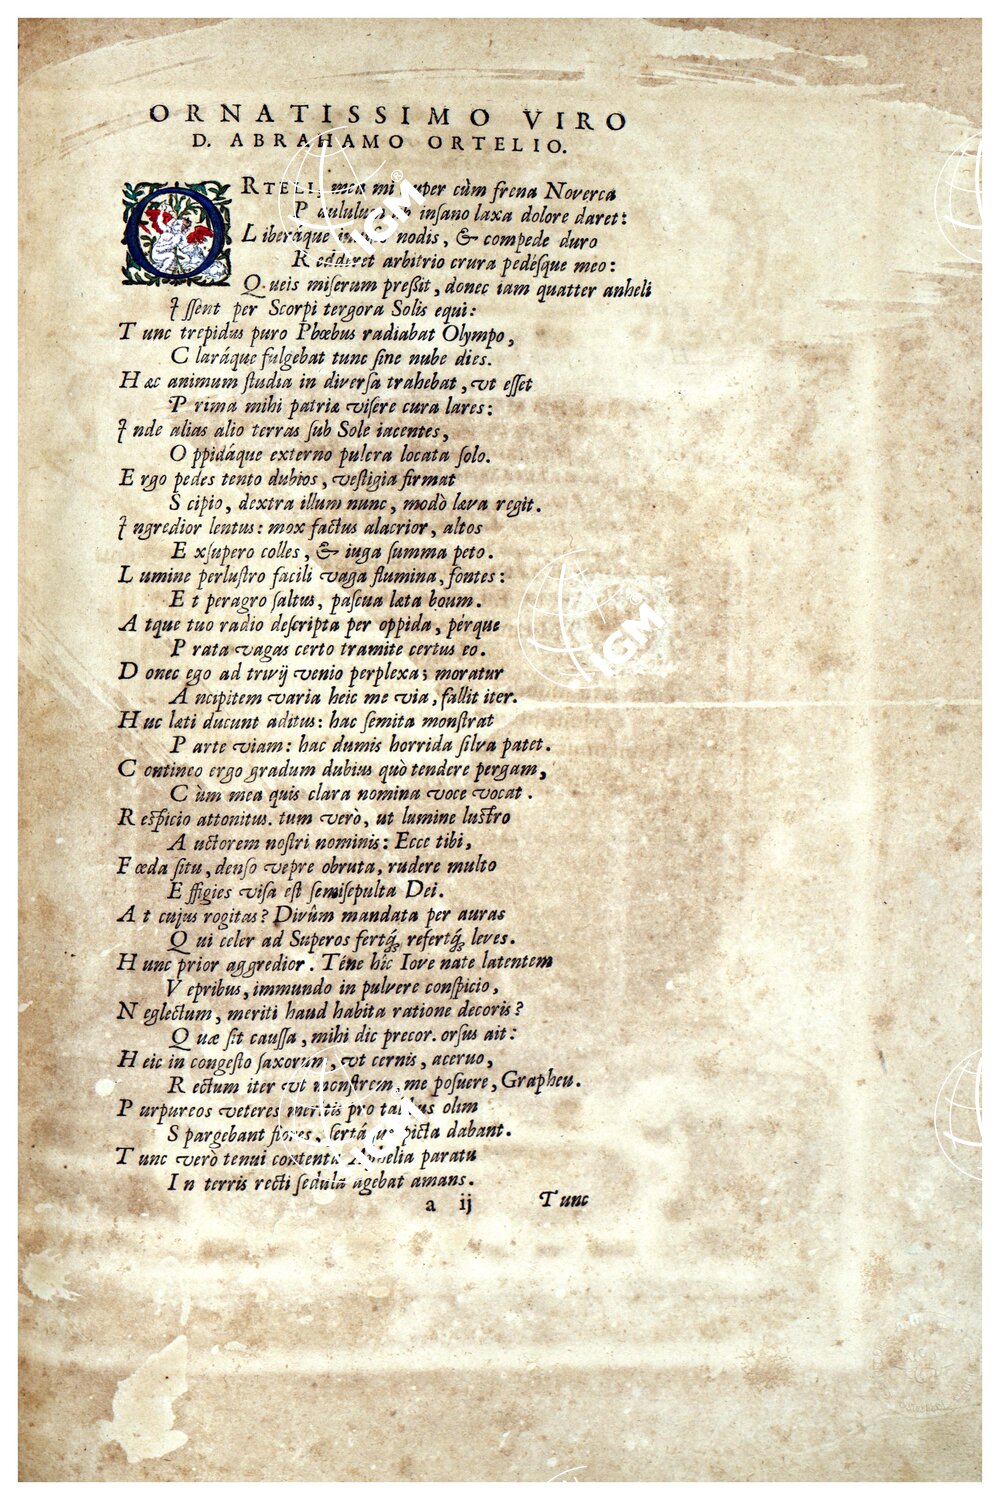 ORNATISSIMO VIRO
D. ABRAHAMO ORTELIO.
ORTELI, mea mi super cùm frena Noverca
Paululum insano laxa dolore daret:
Liberáque nodis, & compede duro
Redderet arbitrio crura pedésque meo:
Queis miserum preßit, donec iam quatter anheli
Issent per Scorpi tergora Solis equi:
Tunc trepidus puro Phœbus radiabat Olympo,
Claráque fulgebat tunc sine nube dies.
Hæc animum studia in diversa trahebat, vt esset
Prima mihi patriæ visere cura lares:
Inde alias alio terras sub Sole iacentes,
Oppidáque externo pulcra locata solo.
Ergo pedes tento dubios, vestigia firmat
Scipio, dextra illum nunc, modò læva regit.
Ingredior lentus: mox factus alacrior, altos
Exsupero colles, & iuga summa peto.
Lumine perlustro facili vaga flumina, fontes:
Et peragro saltus, pascua læta boum.
Atque tuo radio descripta per oppida, pérque
Prata vagas certo tramite certus eo.
Donec ego ad trivij venio perplexa; moratur
Ancipitem varia heic me via, fallit iter.
Huc læti ducunt aditus: hac semita monstrat
Parte viam: hac dumis horrida silva patet.
Contineo ergo gradum dubius quò tendere pergam,
Cùm mea quis clara nomina voce vocat.
Respicio attonitus. tum verò, ut lumine lustro
Auctorem nostri nominis: Ecce tibi,
Fœda situ, denso vepre obruta, rudere multo
Effigies visa est semisepulta Dei.
At cujus rogitas? Divûm mandata per auras
Qui celer ad Superos fertq́; refertq́; leves.
Hunc prior aggredior. Téne hîc Iove nate latentem
Vepribus, immundo in pulvere conspicio,
Neglectum, meriti haud habita ratione decoris?
Quæ sit caussa, mihi dic precor. orsus ait:
Heic in congesto saxorum, vt cernis, aceruo,
Rectum iter vt monstrem, me posuere, Grapheu.
Purpureos veteres meritis pro talibus olim
Spargebant flores, sertáque picta dabant.
Tunc verò tenui contenta Amelia paratu
In terris recti sedula agebat amans.
a ij Tunc
IGM
IGM